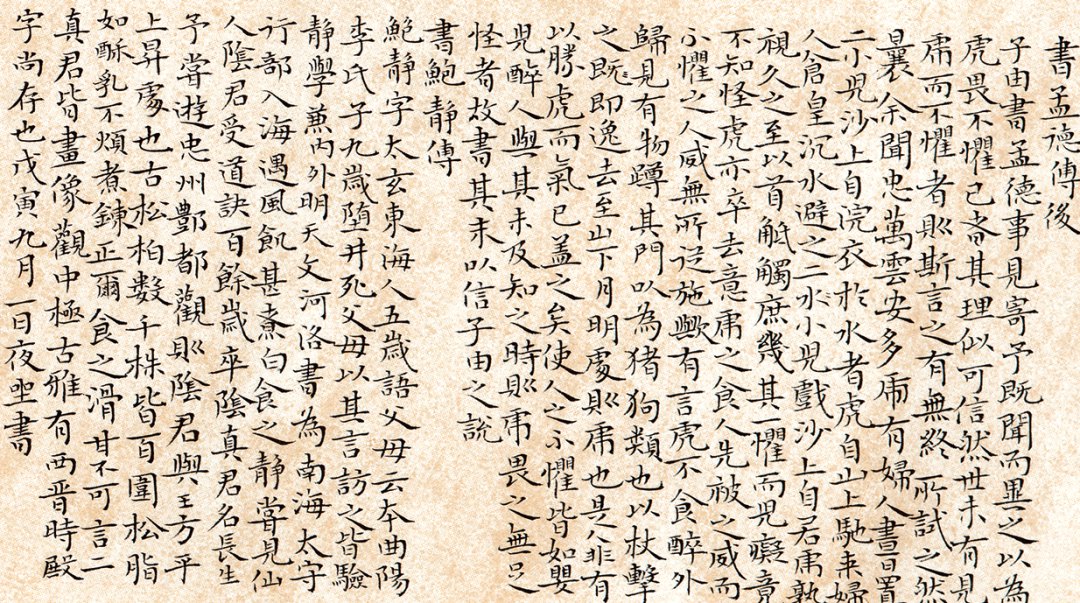 書孟德傳後
子由書孟德事見寄予既聞而異之以為
虎畏不懼己者其理似可信然世未有見
虎而不懼者則斯言之有無終所試之然
曩余聞忠萬雲安多虎有婦人晝日置
二小兒沙上自浣衣於水者虎自山上馳来婦
人倉皇沉水避之二小兒戲沙上自若虎熟
視久之至以首觝觸庶幾其一懼而兒癡竟
不知怪虎亦卒去意虎之食人先被之威而
不懼之人威無所從施歟有言虎不食醉外
歸見有物蹲其門以為猪狗類也以杖擊
之既即逸去至山下月明處則虎也是人非有
以勝虎而氣已蓋之矣使人之不懼皆如嬰
兒醉人與其未及知之時則虎畏之無足
怪者故書其末以信子由之說
書鮑静傳
鮑静字太玄東海人五歲語父母云本曲陽
李氏子九歲堕井死父母以其言訪之皆驗
静學兼內外明天文河洛書為南海太守
行部入海遇風飢甚煮白食之静嘗見仙
人陰君受道訣百餘歲卒陰真君名長生
予嘗遊忠州酆都觀則陰君與王方平
上昇處也古松柏數千株皆百圍松脂
如酥乳不煩煮鍊正爾食之滑甘不可言二
真君皆畫像觀中極古雅有西晋時殿
字尚存也戊寅九月一日夜坐書